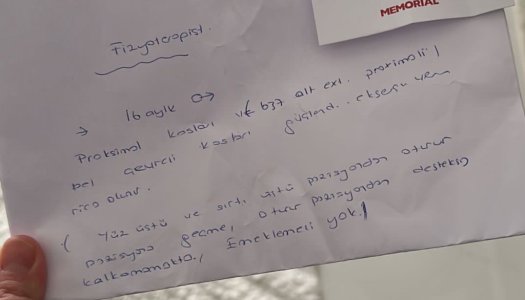 MEMORIAL
Fizyoterapist.
→ 16 aylık ♂
Proksimal kasları ve (b37 alt ext. proximali)
bel çevresi kasları güçlend. egzersiz
rica olunur.
( Yüz üstü ve sırt üstü pozisyondan oturur
pozisyona geçme, oturur pozisyondan desteksiz
kalkamamakta, Emeklemesi yok.)